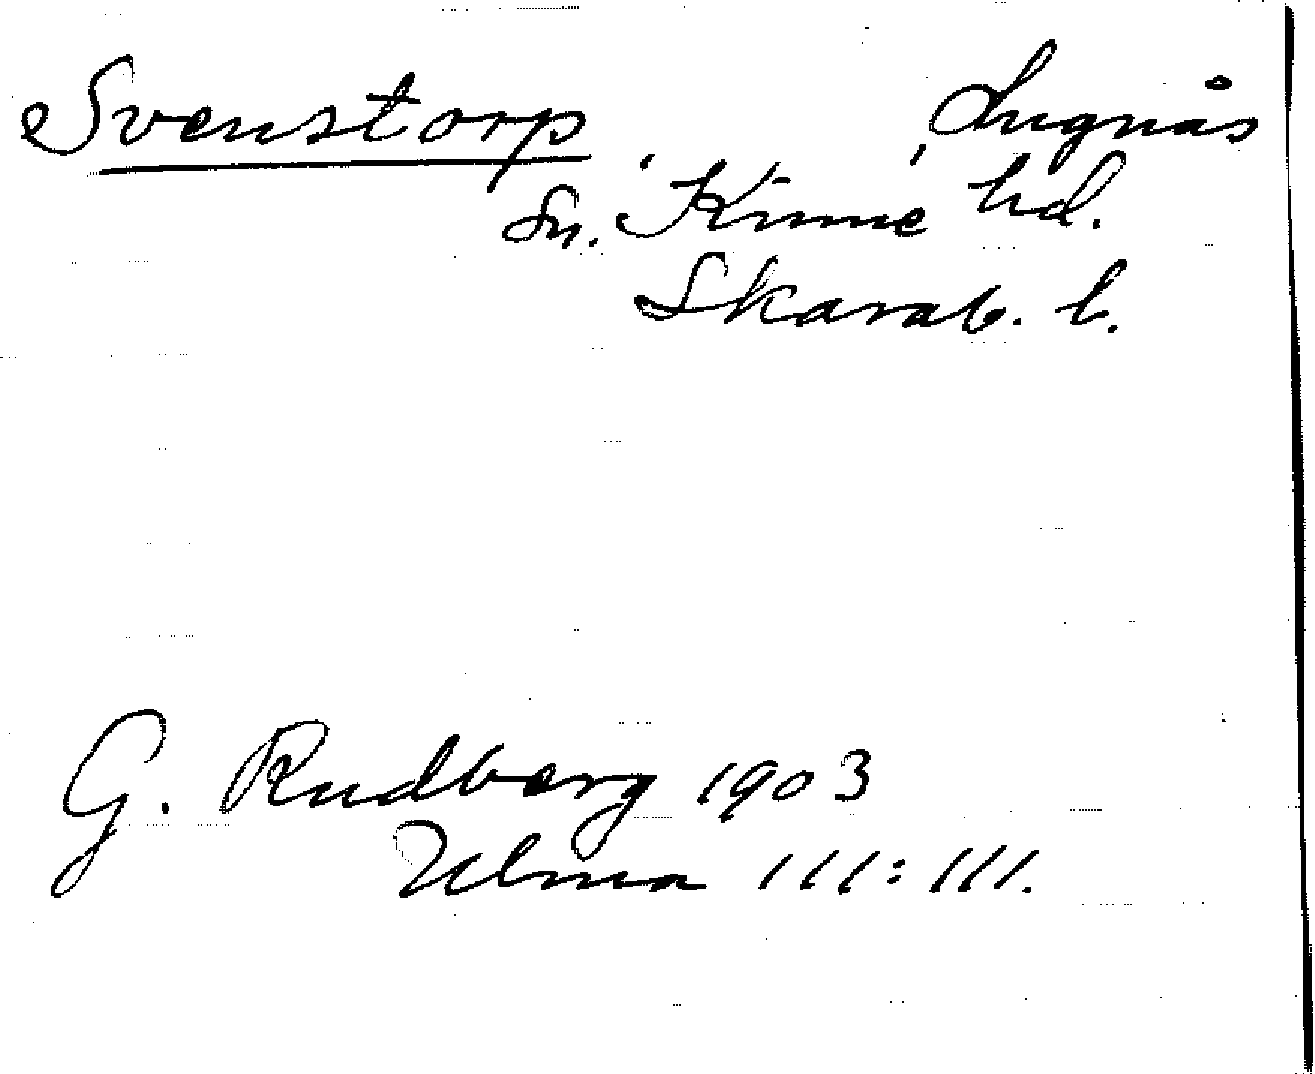 Svenstorp, Lugnås
sn. Kinne hd.
Skarab. l.
G. Rudberg 1903
Ulma 111:111.